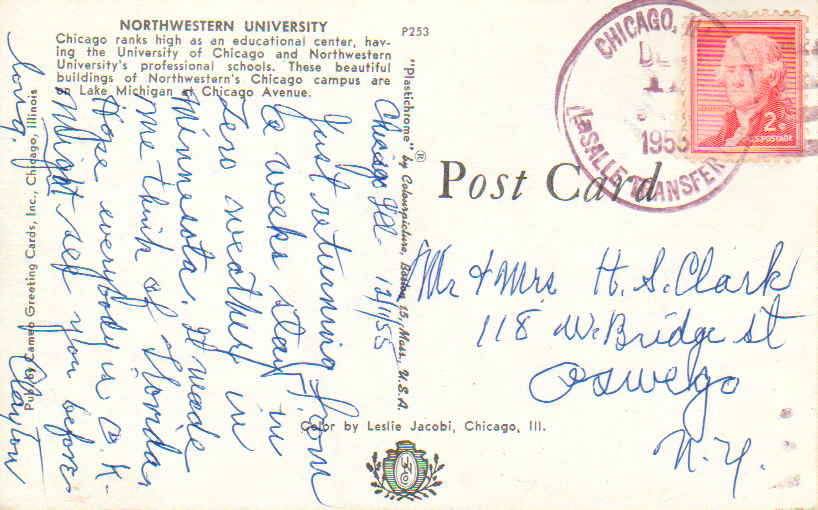 NORTHWESTERN UNIVERSITY
Chicago ranks high as an educational center, hav-
ing the University of Chicago and Northwestern
University's professional schools. These beautiful
buildings of Northwestern's Chicago campus are
on Lake Michigan at Chicago Avenue.
P253
CHICAGO, ILL
DEC
11
1955
LaSALLE TRANSFER
2¢
U.S. POSTAGE
Post Card
"Plastichrome" ® by Colourpicture, Boston 15, Mass., U.S.A.
Pub. by Cameo Greeting Cards, Inc., Chicago, Illinois
Chicago Ill- 12/11/55
Just returning from
a weeks stay in
Zero weather in
Minnesota. It made
me think of Florida,
Hope everybody is O.K-
Might see you before
long.
Clayton
Mr & Mrs H. S. Clark
118 W. Bridge St
Oswego
N.Y.
Color by Leslie Jacobi, Chicago, Ill.